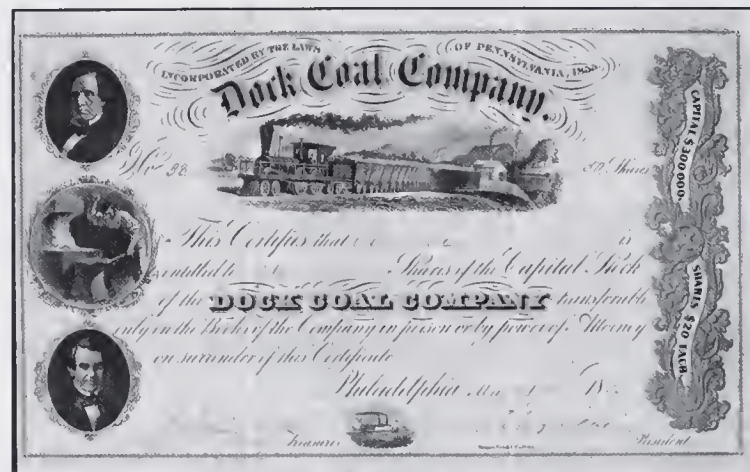 INCORPORATED BY THE LAWS OF PENNSYLVANIA,
Dock Coal Company.
No. 98 50 Shares
CAPITAL $300.000.
This Certifies that is
entitled to Shares of the Capital Stock
of the DOCK COAL COMPANY transferable
only in the Books of the Company in person or by power of Attorney
on surrender of this Certificate
SHARES $20 EACH
Philadelphia 18
Treasurer President